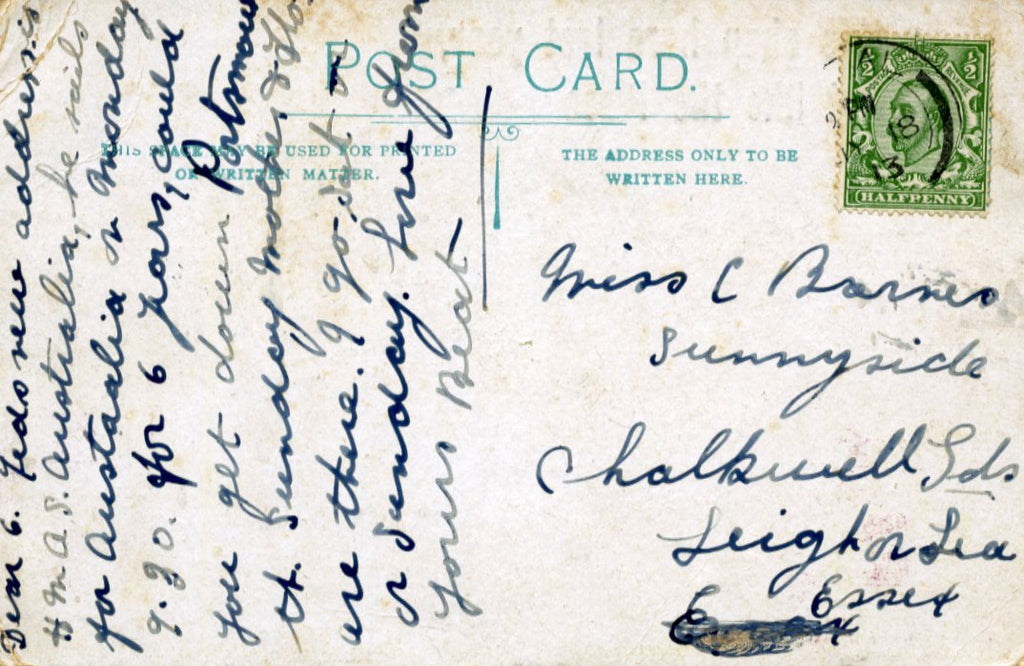 POST CARD.
THIS SPACE MAY BE USED FOR PRINTED
OR WRITTEN MATTER.
THE ADDRESS ONLY TO BE
WRITTEN HERE.
½ ½
HALFPENNY
8
13
Dear C. Freds new address is
H M A S. Australia, he sails
for Austaalia on Monday
9.30. for 6 years, could
you get down Portsmou
St. Sunday Mother & Flo.
are there. I go set on
on Sunday. Love from
Yours Beat
Miss C Barnes
Sunnyside
Chalkwell Gds
Leigh on Sea
Essex